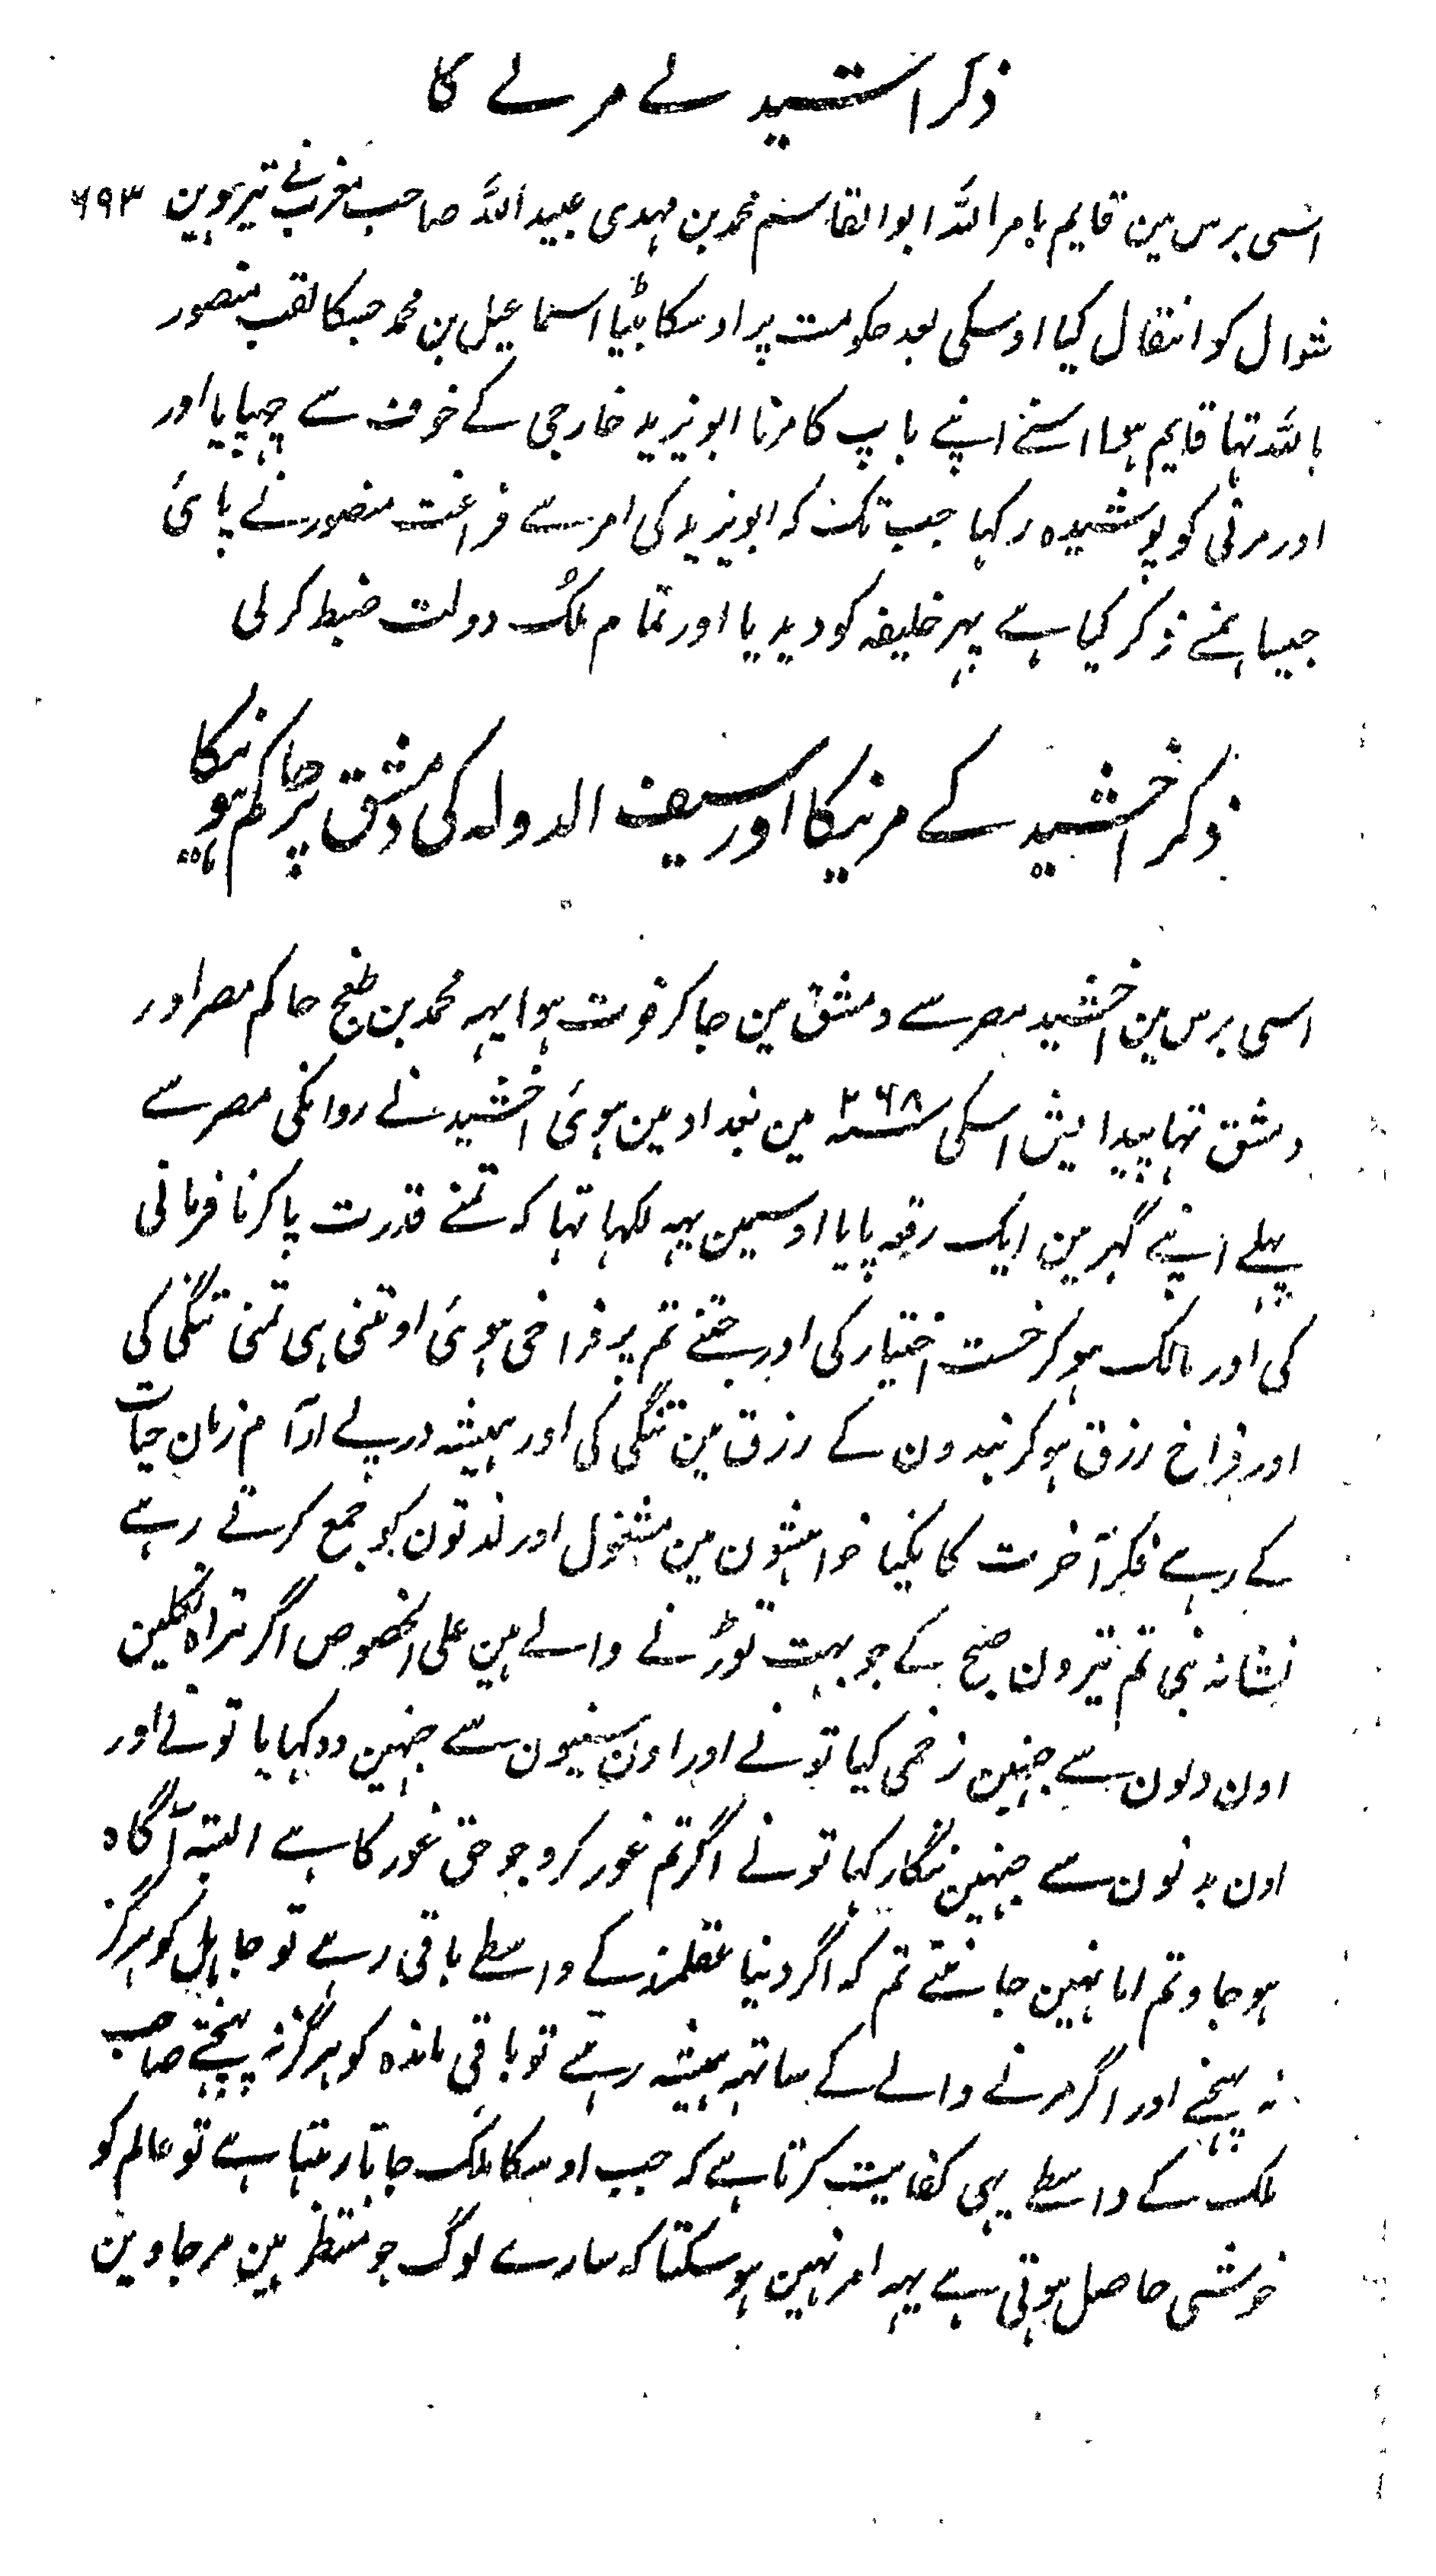 ذکر اشید لے مرلے کا
اسی برس مین قایم بامر اللہ ابو القاسم محمد بن مہدی عبید اللہ صاحب مغرب نے تیرہوین ۶۹۳
شوال کو انتقال کیا اوسکی بعد حکومت پر اوسکا بٹیا اسماعیل بن محمد جسکا لقب منصور
باللہ تہا قایم ہوا اسنے اپنے باپ کا مرنا ابو یزید خارجی کے خوف سے چہپایا اور
اور مرنی کو پوشیدہ رکہا جب تک کہ ابو یزید کی امر سے فراغت منصور نے پائی
جیسا ہمنے ذکر کیا ہے پہر خلیفہ کو دیدیا اور تمام ملک دولت ضبط کر لی
ذکر اخشید کے مرنیکا اور سیف الدولہ کی دمشق پر حاکم ہونیکا
اسی برس مین اخشید مصر سے دمشق مین جا کر فوت ہوا یہہ محمد بن طغج حاکم مصر اور
دمشق تہا پیدایش اسکی سنہ ۲۶۸ مین بغداد مین ہوئی اخشید نے روانگی مصر سے
پہلے اپنے گہر مین ایک رقعہ پایا اوسمین یہہ لکہا تہا کہ تمنے قدرت پا کر نافرمانی
کی اور مالک ہو کر خست اختیار کی اور جتنے تم پر فراخی ہوئی اوتنی ہی تمنی تنگی کی
اور فراخ رزق ہو کر بندون کے رزق مین تنگی کی اور ہمیشہ درپے ارآم زمان حیات
کے رہے فکر آخرت کا نکیا خواہشون مین مشغول اور لذتون کو جمع کرتے رہے
نشانہ بنی تم تیرون صبح کے جو بہت توڑنے والے ہین علی الخصوص اگر تراہ نکلین
اون دلون سے جنہین زخمی کیا تو نے اور اون سینون سے جنہین ددکہایا تو نے اور
اون بدنون سے جنہین ننگا رکہا تو نے اگر تم غور کرو جو حق غور کا ہے البتہ آگاہ
ہو جاو تم اما نہین جانتے تم کہ اگر دنیا عقلمند کے واسطے باقی رہے تو جاہل کو ہرگز
نہ پہنچے اور اگر مرنے والے کے ساتہہ ہمیشہ رہتے تو باقی ماندہ کو ہرگز نہ پہنچتے صاحب
ملک کے واسطے یہی کفایت کرتا ہے کہ جب اوسکا ملک جاتا رہتا ہے تو عالم کو
خوشی حاصل ہوتی ہے یہہ امر نہین ہو سکتا کہ سارے لوگ جو منتظر ہین مر جاوین